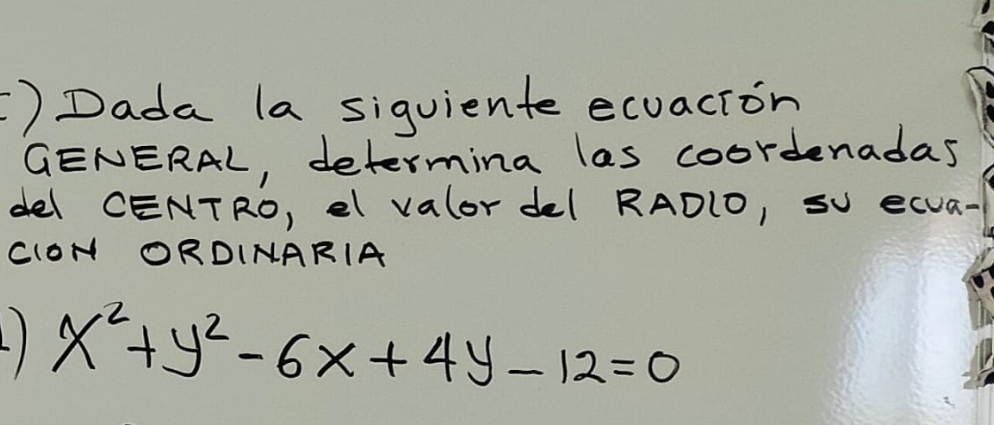 ) Dada la siguiente ecuación
GENERAL, determina las coordenadas
del CENTRO, el valor del RADIO, su ecua-
CION ORDINARIA
) x²+y²-6x+4y-12=0